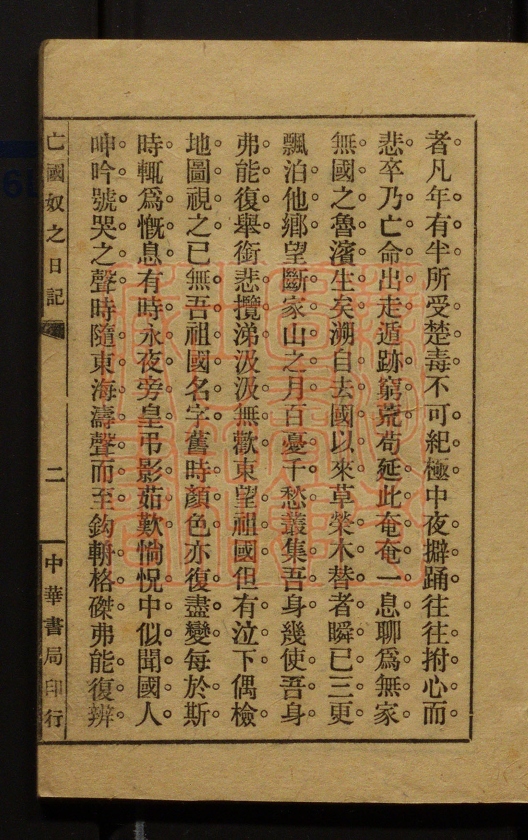 者凡年有半所受楚毒不可紀極中夜擗踊往往拊心而
悲卒乃亡命出走遁跡窮荒苟延此奄奄一息聊爲無家
無國之魯濱生矣溯自去國以來草榮木替者瞬已三更
飄泊他鄉望斷家山之月百憂千愁叢集吾身幾使吾身
弗能復舉銜悲攬涕汲汲無歡東望祖國但有泣下偶檢
地圖視之已無吾祖國名字舊時顏色亦復盡變每於斯
時輒爲慨息有時永夜旁皇弔影茹歎惝怳中似聞國人
呻吟號哭之聲時隨東海濤聲而至鈎輈格磔弗能復辨
亡國奴之日記
二
中華書局印行